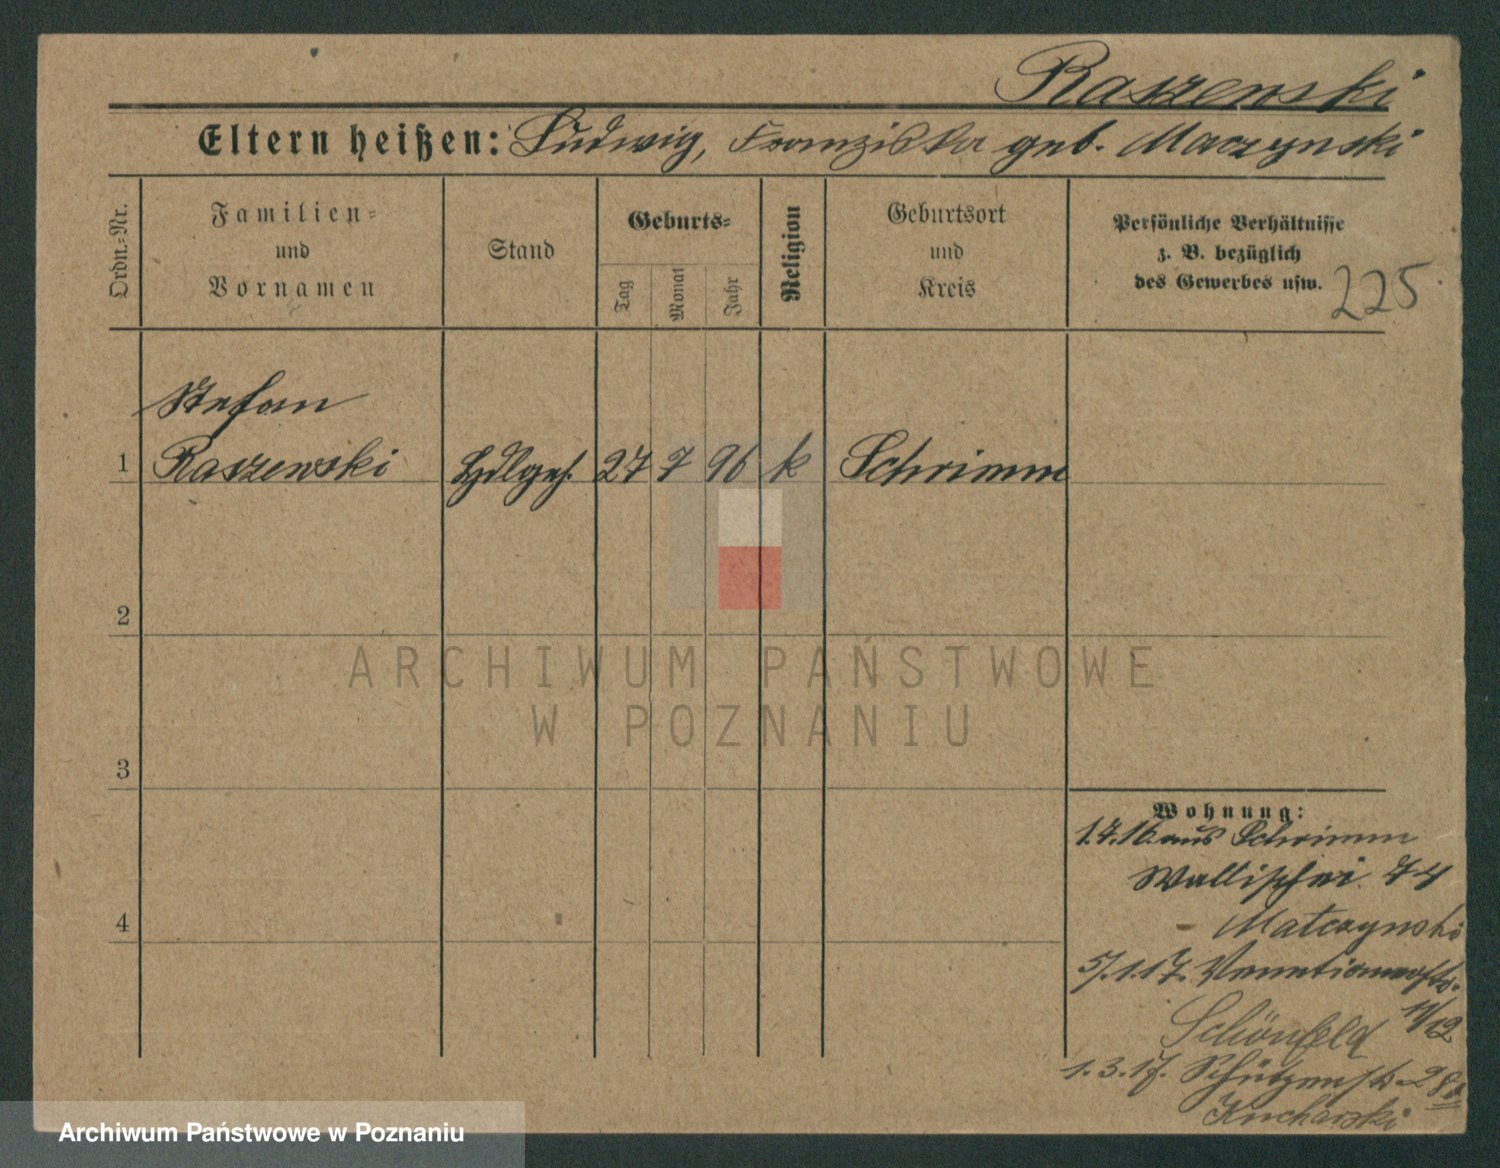 Raszewski
Eltern heißen: Ludwig, Franziska geb. Maczynski
Ordn.=Nr.
Familien=
und
Vornamen
Stand
Geburts=
Tag
Monat
Jahr
Religion
Geburtsort
und
Kreis
Persönliche Verhältnisse
z. B. bezüglich
des Gewerbes usw.
225
Stefan
1 Raszewski Hdlgeh. 27 7 96 k Schrimm
2
ARCHIWUM PAŃSTWOWE
W POZNANIU
3
Wohnung:
1.7.16. aus Schrimm
Wallischei 74
4
Matczynski
5.1.17. Venetianerstr.
11/12
Schönfeld
1.3.17. Schützenstr. 28a
Kucharski
Archiwum Państwowe w Poznaniu